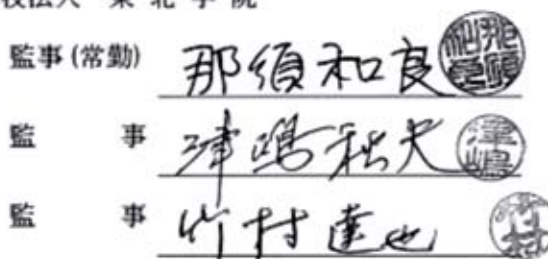 校法人 東北学院
監事(常勤) 那須和良
監事 津嶋秋夫
監事 竹村達也